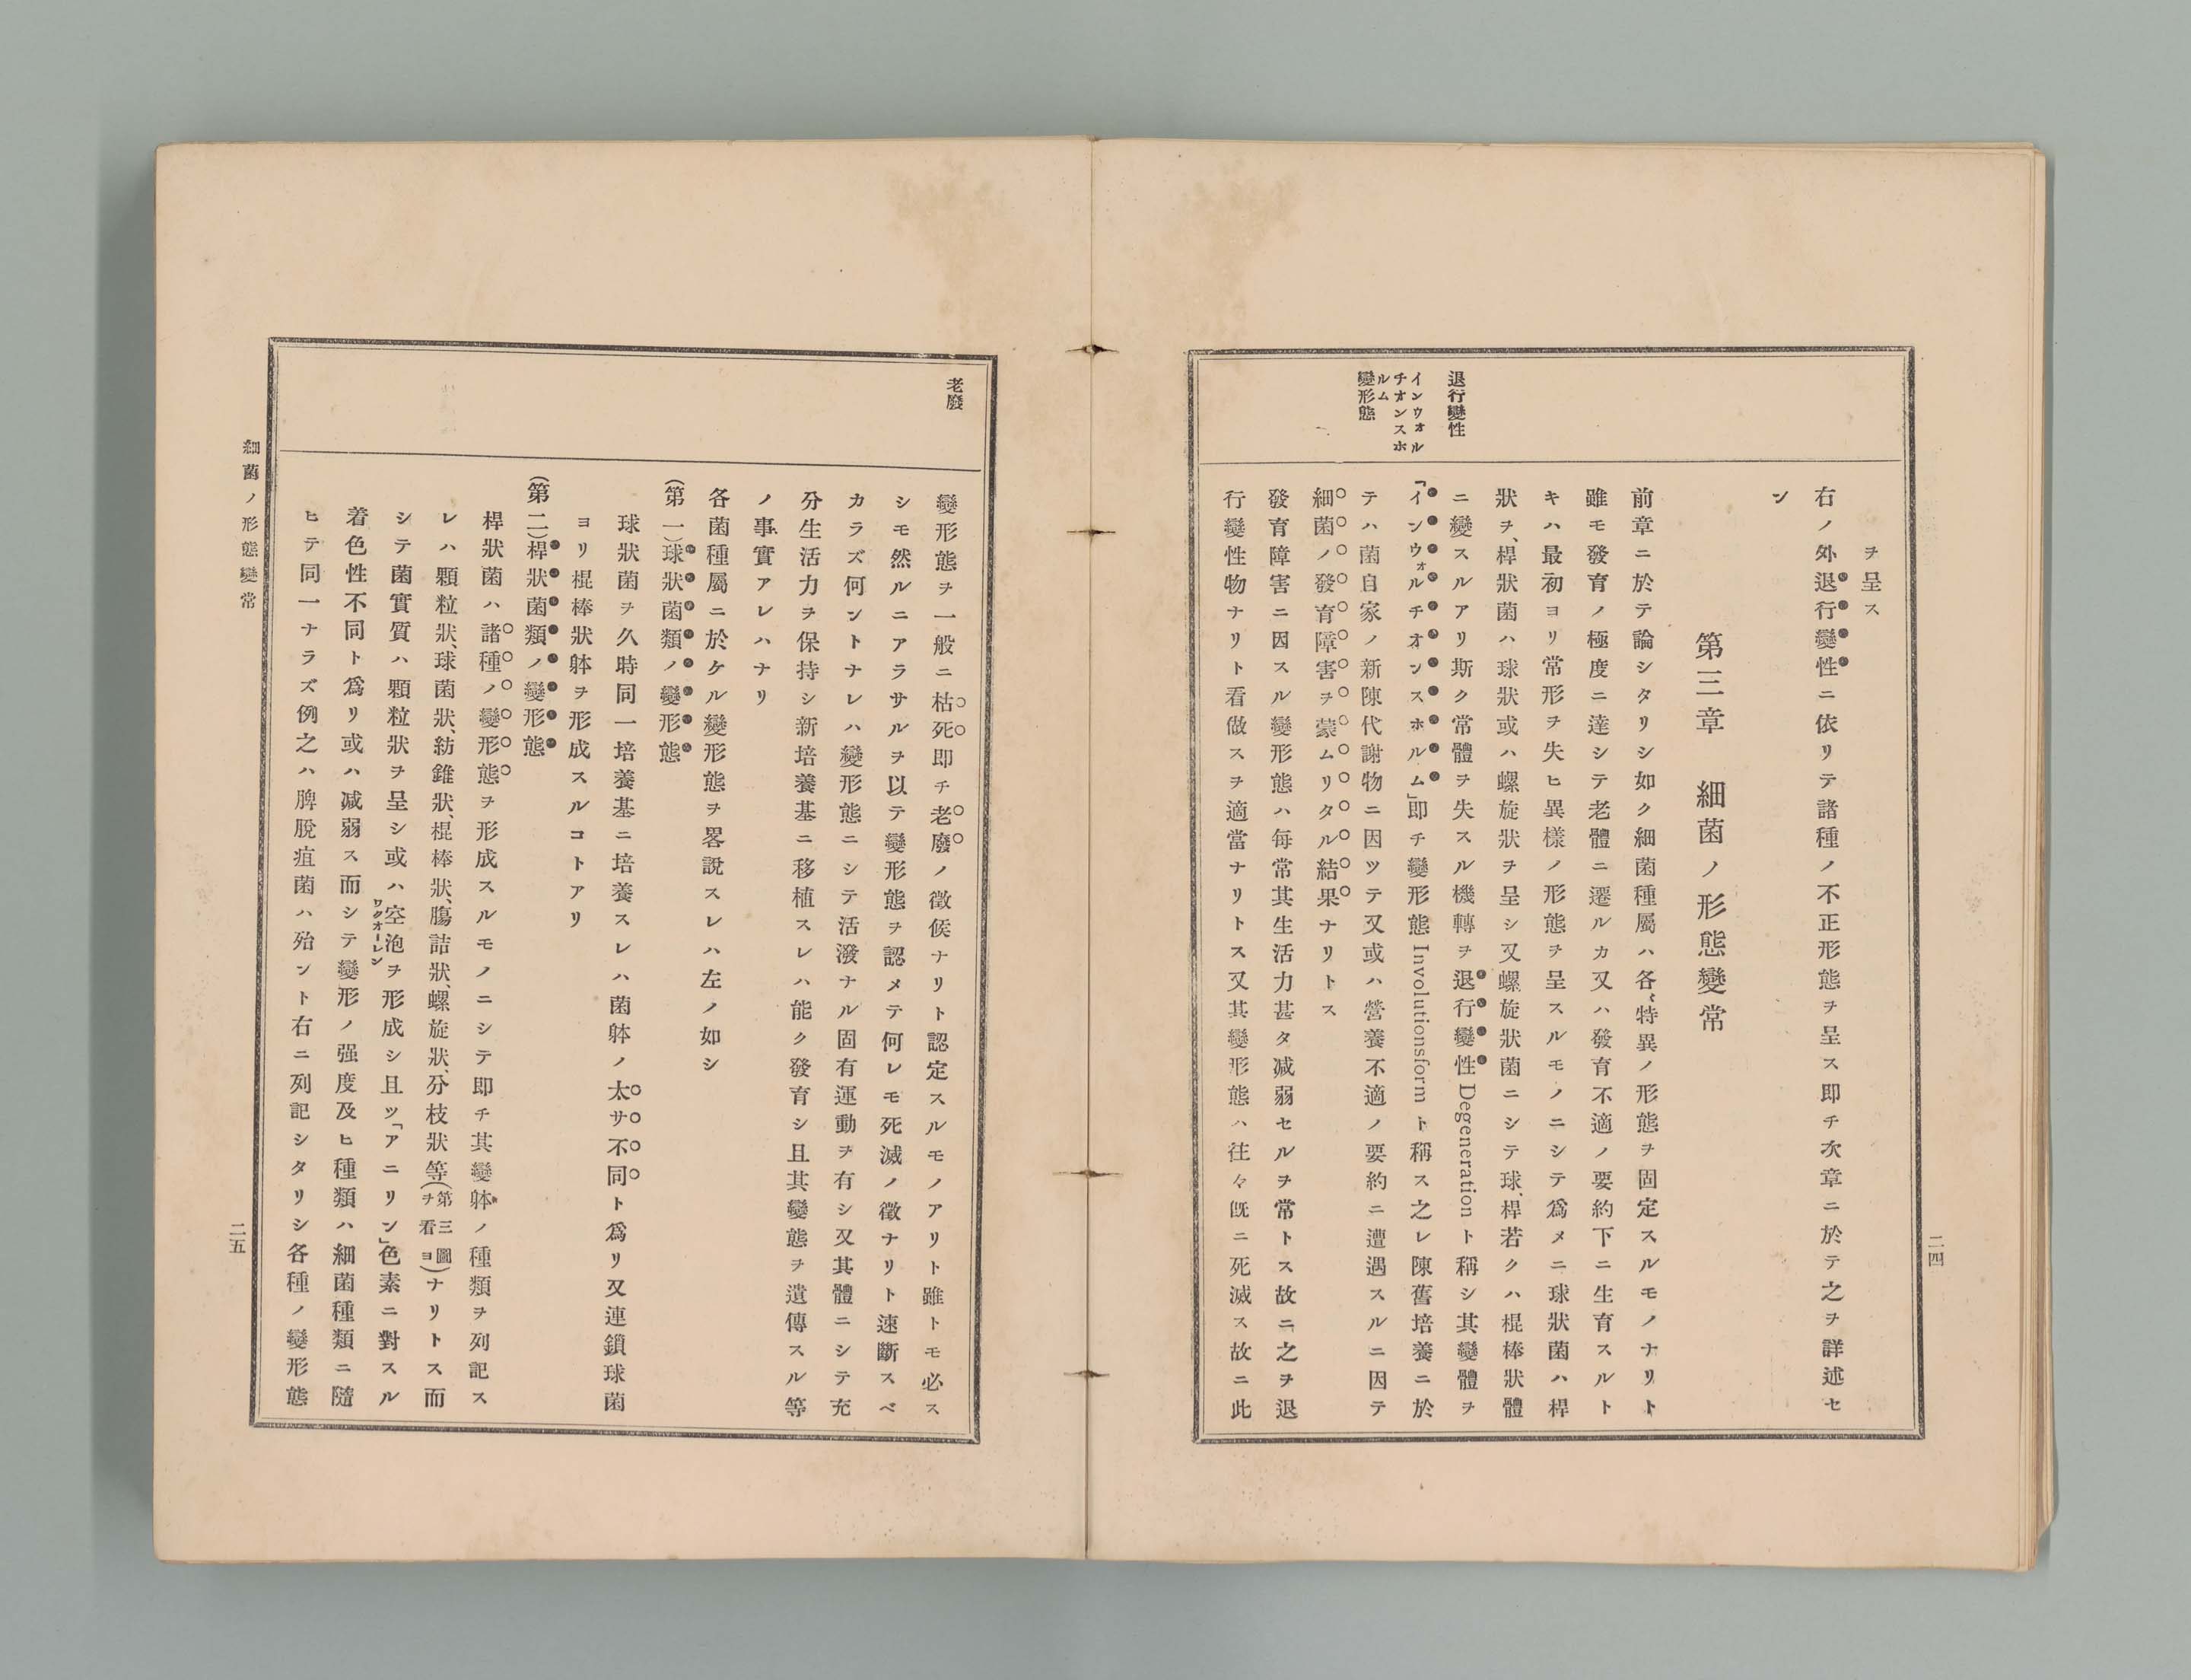 二四
退行變性
インウォル
チオンスホ
ルム
變形態
ヲ呈ス
右ノ外退行變性ニ依リテ諸種ノ不正形態ヲ呈ス即チ次章ニ於テ之ヲ詳述セ
ン
第三章 細菌ノ形態變常
前章ニ於テ論シタリシ如ク細菌種屬ハ各〻特異ノ形態ヲ固定スルモノナリト
雖モ發育ノ極度ニ達シテ老體ニ遷ルカ又ハ發育不適ノ要約下ニ生育スルト
キハ最初ヨリ常形ヲ失ヒ異樣ノ形態ヲ呈スルモノニシテ爲メニ球狀菌ハ桿
狀ヲ、桿狀菌ハ球狀或ハ螺旋狀ヲ呈シ又螺旋狀菌ニシテ球、桿若クハ棍棒狀體
ニ變スルアリ斯ク常體ヲ失スル機轉ヲ退行變性 Degeneration ト稱シ其變體ヲ
「インウォルチオンスホルム」即チ變形態 Involutionsform ト稱ス之レ陳舊培養ニ於
テハ菌自家ノ新陳代謝物ニ因ツテ又或ハ營養不適ノ要約ニ遭遇スルニ因テ
細菌ノ發育障害ヲ蒙ムリタル結果ナリトス
發育障害ニ因スル變形態ハ每常其生活力甚タ減弱セルヲ常トス故ニ之ヲ退
行變性物ナリト看做スヲ適當ナリトス又其變形態ハ往々既ニ死滅ス故ニ此
老廢
變形態ヲ一般ニ枯死即チ老廢ノ徵候ナリト認定スルモノアリト雖トモ必ス
シモ然ルニアラサルヲ以テ變形態ヲ認メテ何レモ死滅ノ徵ナリト速斷スベ
カラズ何ントナレハ變形態ニシテ活潑ナル固有運動ヲ有シ又其體ニシテ充
分生活力ヲ保持シ新培養基ニ移植スレハ能ク發育シ且其變態ヲ遺傳スル等
ノ事實アレハナリ
各菌種屬ニ於ケル變形態ヲ畧說スレハ左ノ如シ
(第一)球狀菌類ノ變形態
球狀菌ヲ久時同一培養基ニ培養スレハ菌躰ノ太サ不同ト爲リ又連鎖球菌
ヨリ棍棒狀躰ヲ形成スルコトアリ
(第二)桿狀菌類ノ變形態
桿狀菌ハ諸種ノ變形態ヲ形成スルモノニシテ即チ其變躰ノ種類ヲ列記ス
レハ顆粒狀、球菌狀、紡錐狀、棍棒狀、膓詰狀、螺旋狀、分枝狀等(第三圖ヲ看ヨ)ナリトス而
シテ菌實質ハ顆粒狀ヲ呈シ或ハ空泡ワクオーレンヲ形成シ且ツ「アニリン」色素ニ對スル
着色性不同ト爲リ或ハ減弱ス而シテ變形ノ强度及ヒ種類ハ細菌種類ニ隨
ヒテ同一ナラズ例之ハ脾脫疽菌ハ殆ント右ニ列記シタリシ各種ノ變形態
細菌ノ形態變常
二五